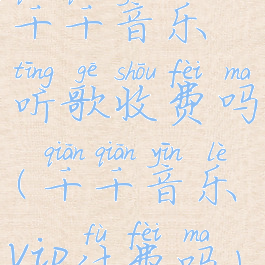 千千音乐
tīng gē shōu fèi ma
听歌收费吗
qiān qiān yīn lè
(千千音乐
fù fèi ma
VIP付费吗)